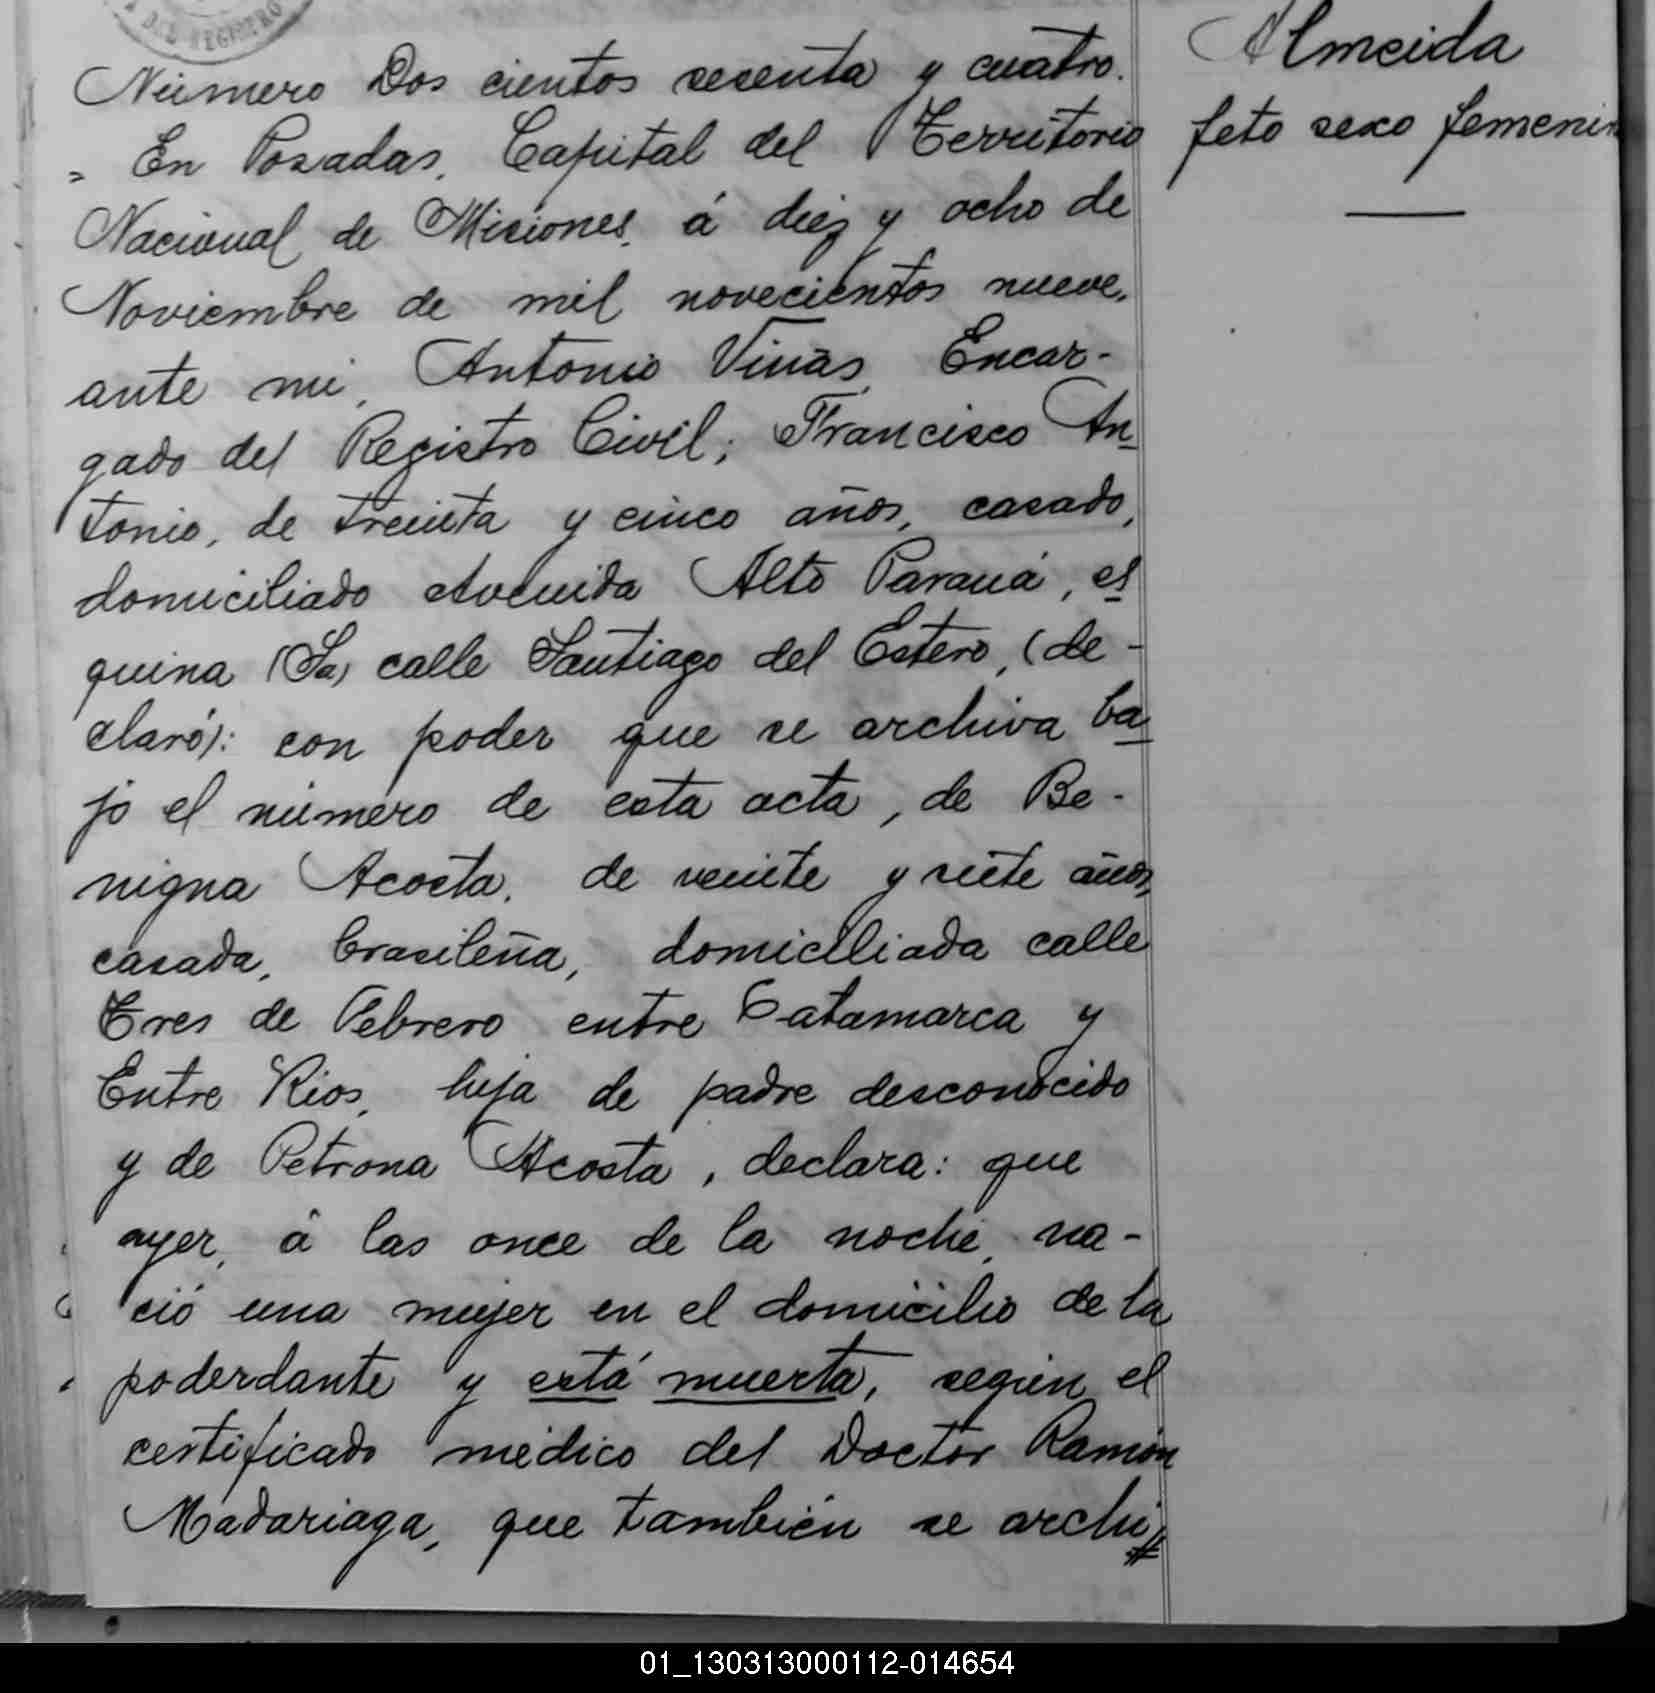 DEL REGISTRO
Número Dos cientos sesenta y cuatro.
= En Posadas, Capital del Territorio
Nacional de Misiones, á diez y ocho de
Noviembre de mil novecientos nueve,
ante mi, Antonio Viñas, Encar-
gado del Registro Civil; Francisco An_
tonio, de treinta y cinco años, casado,
domiciliado Avenida Alto Paraná, es
quina (Sa) calle Santiago del Estero, (de-
claró): con poder que se archiva ba
jo el número de esta acta, de Be-
nigna Acosta, de veinte y siete años,
casada, brasileña, domiciliada calle
Tres de Febrero entre Catamarca y
Entre Rios, hija de padre desconocido
y de Petrona Acosta, declara: que
ayer, á las once de la noche, na-
ció una mujer en el domicilio de la
poderdante y está muerta, según el
certificado médico del Doctor Ramón
Madariaga, que también se archi//
Almeida
feto sexo femenin
01_130313000112-014654